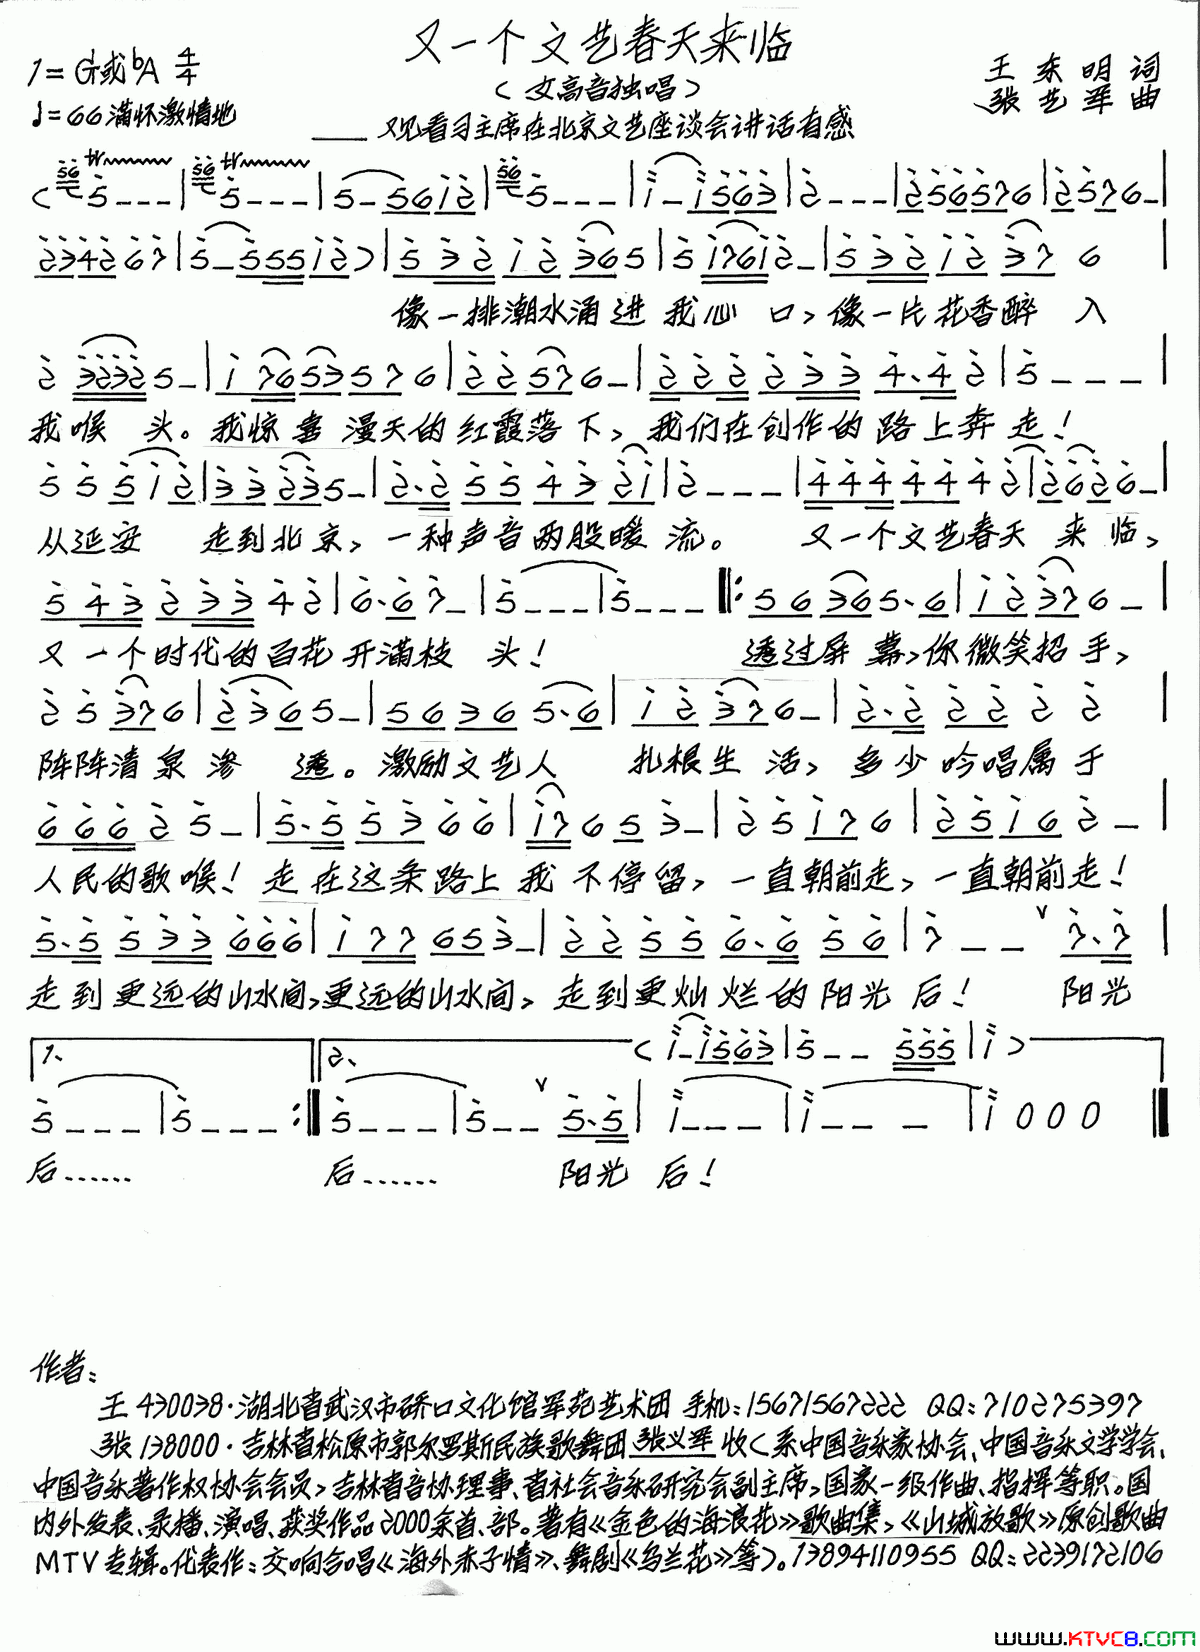 又一个文艺春天来临
1=G或bA 4/4
（女高音独唱）
王东明 词
张艺军 曲
♩=66 满怀激情地
——观看习主席在北京文艺座谈会讲话有感
像一排潮水涌进我心口，像一片花香醉入
我喉头。我惊喜漫天的红霞落下，我们在创作的路上奔走！
从延安走到北京，一种声音两股暖流。又一个文艺春天来临，
又一个时代的百花开满枝头！透过屏幕，你微笑招手，
阵阵清泉渗透。激励文艺人扎根生活，多少吟唱属于
人民的歌喉！走在这条路上我不停留，一直朝前走，一直朝前走！
走到更远的山水间，更远的山水间，走到更灿烂的阳光后！阳光
1. 2.
后…… 后…… 阳光后！
作者：
王430038·湖北省武汉市硚口文化馆军苑艺术团 手机：15671567222 QQ：710275397
张138000·吉林省松原市郭尔罗斯民族歌舞团张义军收（系中国音乐家协会、中国音乐文学学会、
中国音乐著作权协会会员，吉林省音协理事、省社会音乐研究会副主席，国家一级作曲、指挥等职。国
内外发表、录播、演唱、获奖作品2000余首、部。著有《金色的海浪花》歌曲集，《山城放歌》原创歌曲
MTV专辑。代表作：交响合唱《海外赤子情》、舞剧《乌兰花》等）。13894110955 QQ：2239172106
www.KTVC8.com